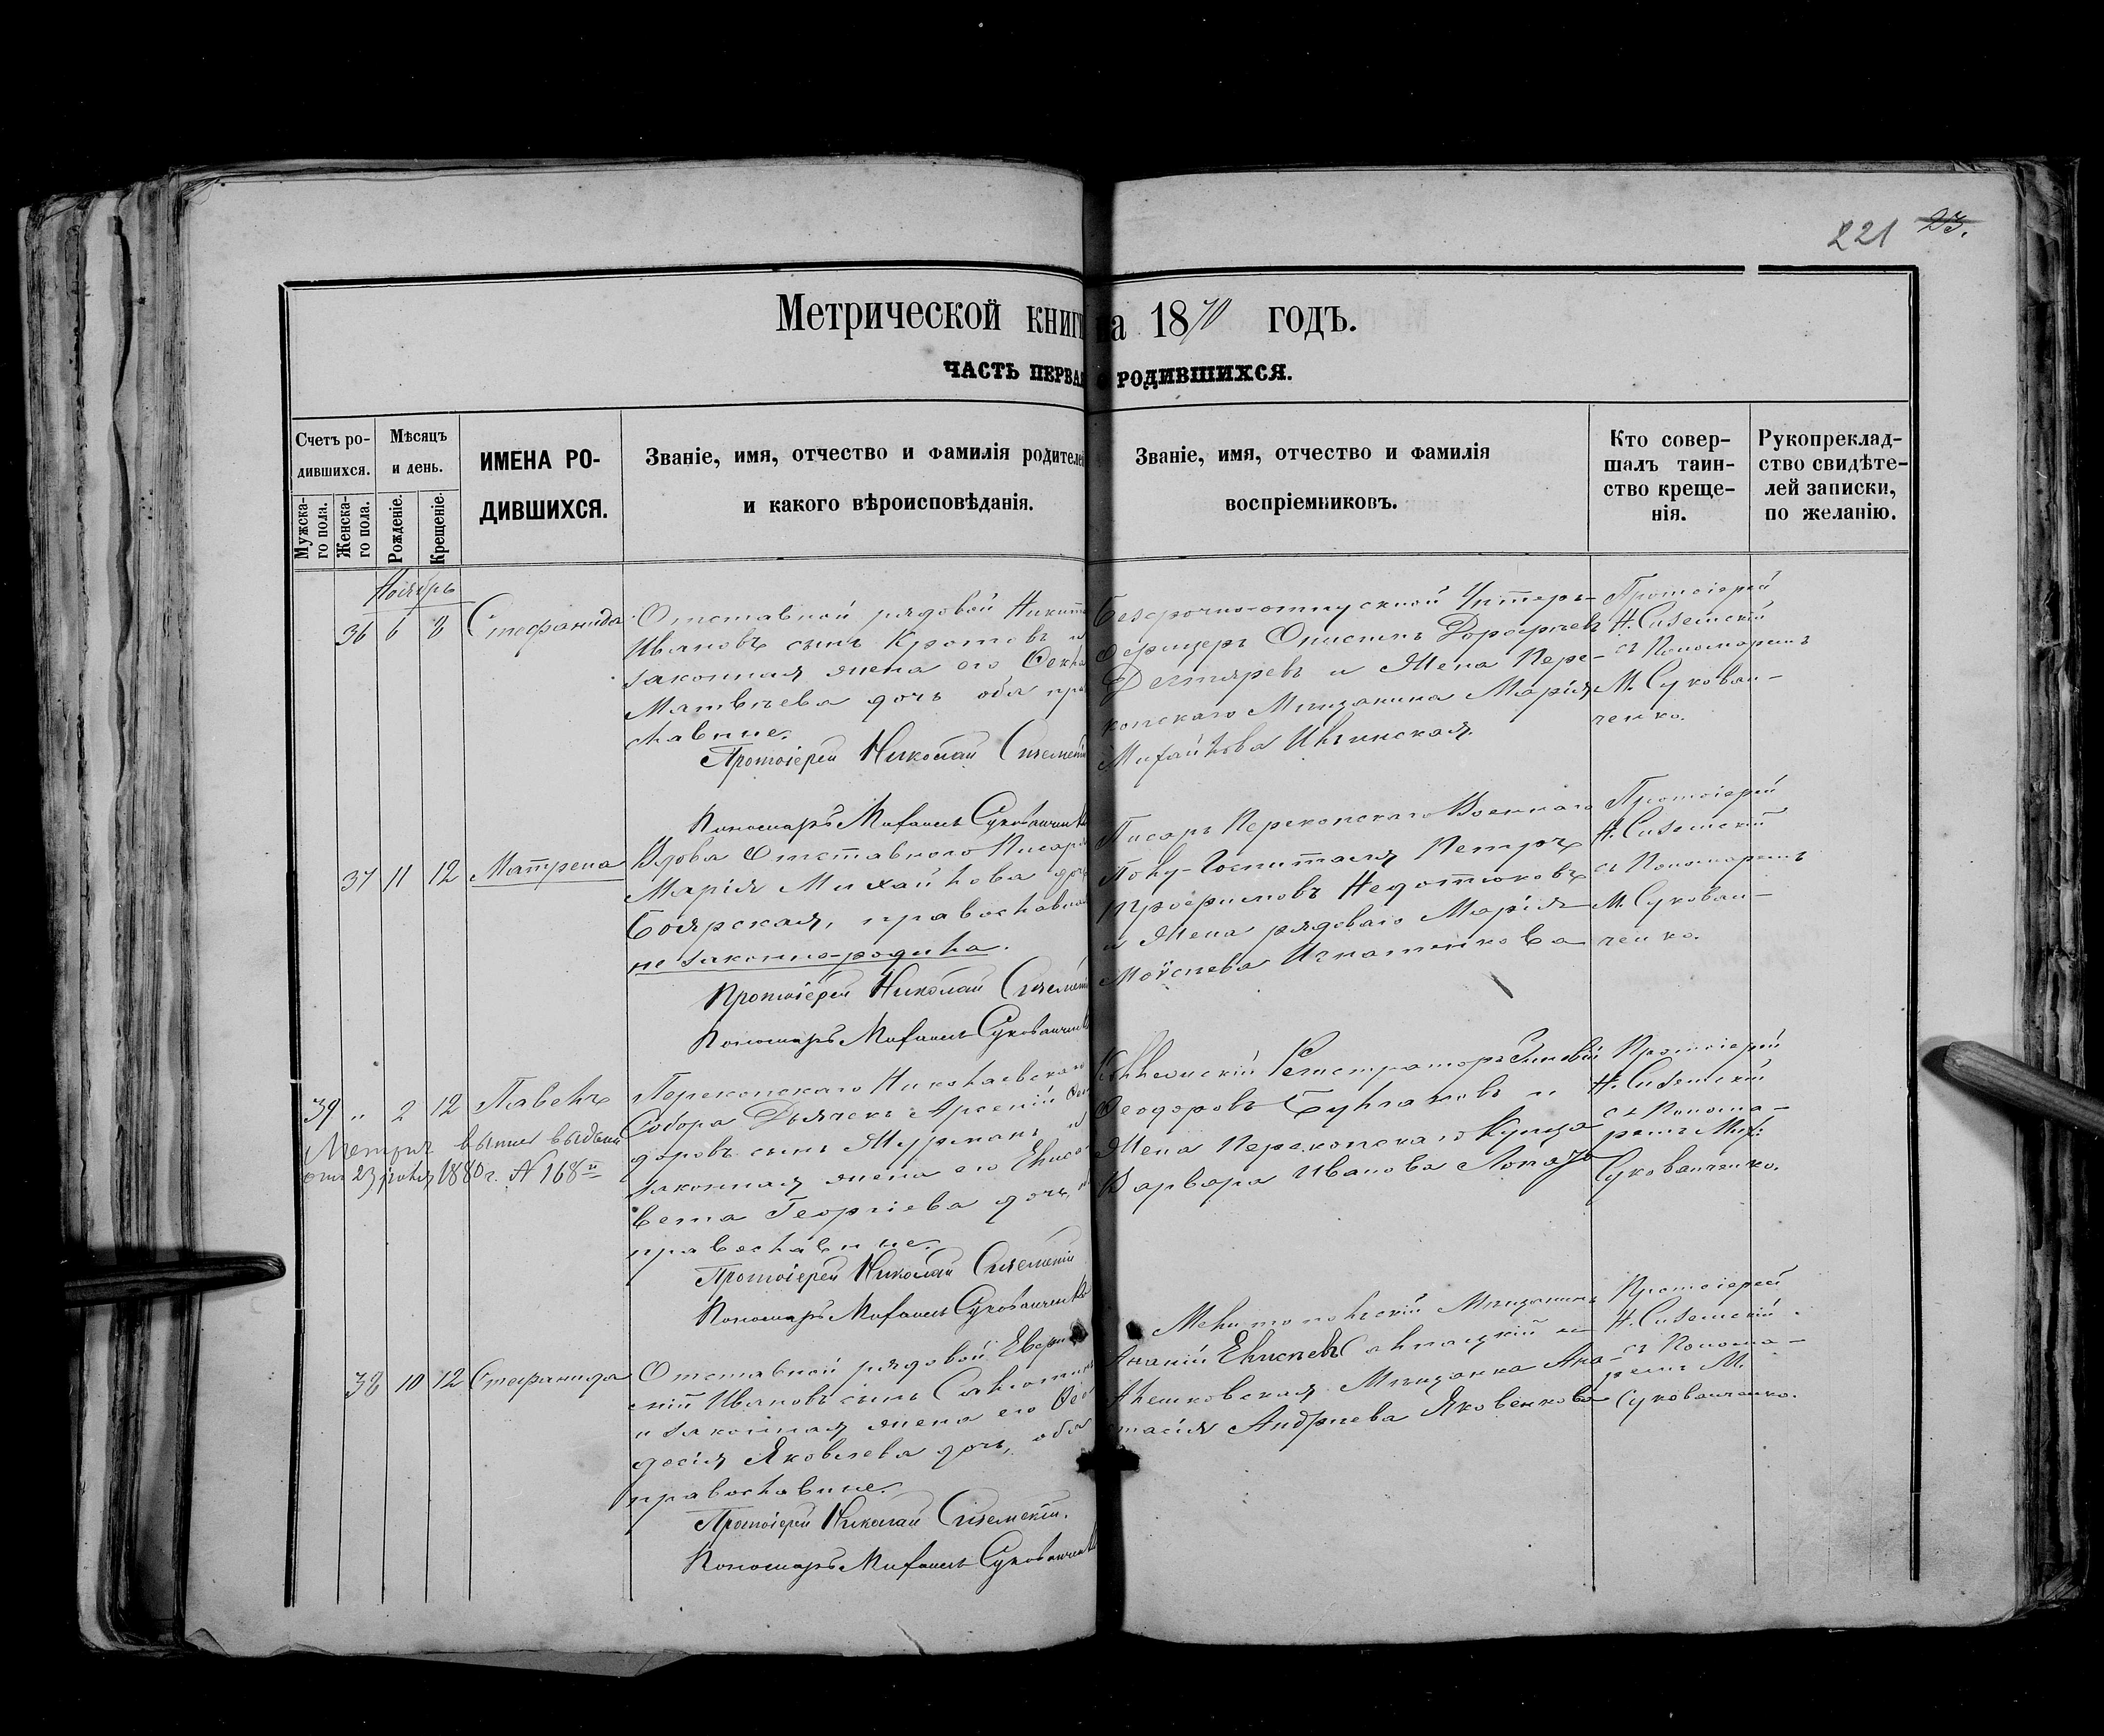 221 23.
Метрической книги на 1870 годъ.
ЧАСТЬ ПЕРВАЯ О РОДИВШИХСЯ.
Счетъ ро-
дившихся.
Мужска-
го пола.
Женска-
го пола.
Мѣсяцъ
и день.
Рожденіе.
Крещеніе.
ИМЕНА РО-
ДИВШИХСЯ.
Званіе, имя, отчество и фамилія родителей
и какого вѣроисповѣданія.
Званіе, имя, отчество и фамилія
воспріемниковъ.
Кто совер-
шалъ таин-
ство креще-
нія.
Рукопреклад-
ство свидѣте-
лей записки,
по желанію.
Ноябрь
36 6 8 Стефанида
Отставной рядовой Никита
Ивановъ сынъ Кротовъ и
законная жена его
Матвѣева дочь оба пра
славные.
Протоіерей Николай Сиземскій
Пономарь Михаилъ Сукованченко
Безсрочно-отпускной Унтеръ-
офицеръ Дорофѣевъ
Дегтяревъ и Жена Пере-
копскаго Мѣщанина Марія
Михайлова
Протоіерей
Н. Сиземскій
съ Пономаремъ
М. Сукован-
ченко.
37 11 12 Матрена
Вдова Отставнаго Писаря
Марія Михайлова дочь
Боярская, православная
не законно-родила.
Протоіерей Николай Сиземскій
Пономарь Михаилъ Сукованченко
Писарь Перекопскаго Военнаго
Полу-Госпиталя Петръ
Трофимовъ Недотюковъ
и Жена рядоваго Марія
Моисеева Игнатенкова
Протоіерей
Н. Сиземскій
съ Пономаремъ
М. Сукован-
ченко.
39 " 2 12 Павелъ
Метрич. выпись выдана
отъ 23 1880 г. № 168
Перекопскаго Николаевскаго
Собора Дьячекъ Арсеній Ѳео
доровъ сынъ и
законная жена его Елиса
вета Георгіева дочь,
православные.
Протоіерей Николай Сиземскій
Пономарь Михаилъ Сукованченко
Коллежскій Регистраторъ Зиновій
Ѳеодоровъ Булгаковъ и
Жена Перекопскаго Купца
Варвара Иванова
Протоіерей
Н. Сиземскій
съ Понома-
ремъ Мих:
Сукованченко.
38 10 12 Стефанида
Отставной рядовой
Ивановъ сынъ
и законная жена его Ѳео
досія Яковлева дочь, оба
православные.
Протоіерей Николай Сиземскій.
Пономарь Михаилъ Сукованченко
Мелитопольскій Мѣщанинъ
Ананій Елисѣевъ и
Алешковская Мѣщанка Ана-
стасія Андреева Яковенкова
Протоіерей
Н. Сиземскій
съ Понома-
ремъ М.
Сукованченко.